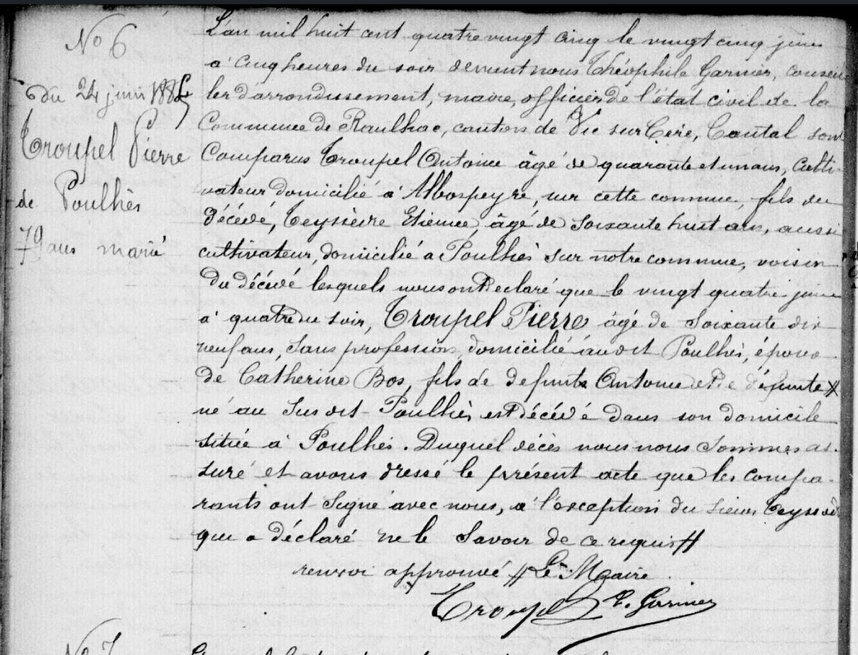 No 6
du 24 juin 1885
Troupel Pierre
de Poulhès
79 ans marié
L'an mil huit cent quatre vingt cinq le vingt cinq juin
à cinq heures du soir devant nous Théophile Garnier, conseil
ler d'arrondissement, maire, officier de l'état civil de la
Commune de Raulhac, canton de Vic sur Cère, Cantal sont
Comparus Troupel Antoine âgé de quarante et un ans, culti
vateur domicilié à Albospeyre, sur cette commune, fils du
décédé, Teyssèdre Etienne, âgé de soixante huit ans, aussi
cultivateur, domicilié à Poulhès sur notre commune, voisin
du décédé lesquels nous ont déclaré que le vingt quatre juin
à quatre du soir, Troupel Pierre âgé de Soixante dix
neuf ans, sans profession, domicilié au dit Poulhès, époux
de Catherine Bos, fils de defunts Antoine et de défunte #
né au susdit Poulhès est décédé dans son domicile
situé à Poulhès. Duquel décès nous nous sommes as-
suré et avons dressé le présent acte que les compa-
rants ont signé avec nous, à l'exception du sieur Teyssèdre
qui a déclaré ne le savoir de ce requis #
renvoi approuvé # Le Maire
Troupel T. Garnier
No 7